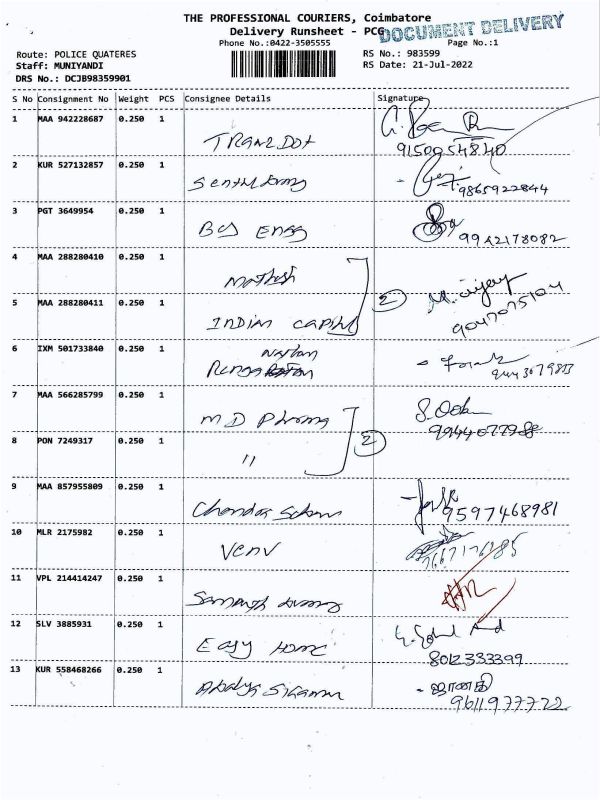 THE PROFESSIONAL COURIERS, Coimbatore
Delivery Runsheet - PCG
DOCUMENT DELIVERY
Phone No.:0422-3505555
Page No.:1
Route: POLICE QUATERES
RS No.: 983599
Staff: MUNIYANDI
RS Date: 21-Jul-2022
DRS No.: DCJB98359901
S No Consignment No Weight PCS Consignee Details Signature
1 MAA 942228687 0.250 1
TRANZ DOT 9150954840
2 KUR 527132857 0.250 1
9865922844
3 PGT 3649954 0.250 1
BCS Engg 9942178082
4 MAA 288280410 0.250 1
Mathesh
M. Vijay
2
5 MAA 288280411 0.250 1
INDIAN CAPITAL 9047075104
6 IXM 501733840 0.250 1
Nathan
Renga
7 MAA 566285799 0.250 1
MD Pharma
9944077988
2
8 PON 7249317 0.250 1
"
9 MAA 857955809 0.250 1
9597468981
10 MLR 2175982 0.250 1
VENV
11 VPL 214414247 0.250 1
12 SLV 3885931 0.250 1
EASY HOME
8012333399
13 KUR 558468266 0.250 1
ஜானகி
9611977722